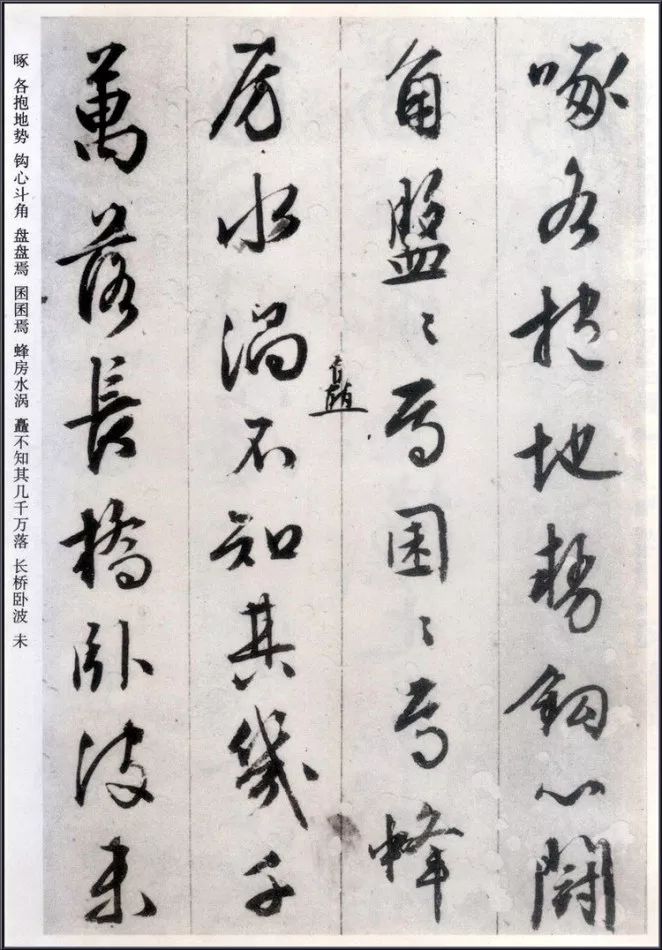 啄各抱地勢鉤心鬪
角盤〻焉囷〻焉蜂
房水渦不知其幾千
矗
萬落長橋臥波未
啄 各抱地势 钩心斗角 盘盘焉 困困焉 蜂房水涡 矗不知其几千万落 长桥卧波 未